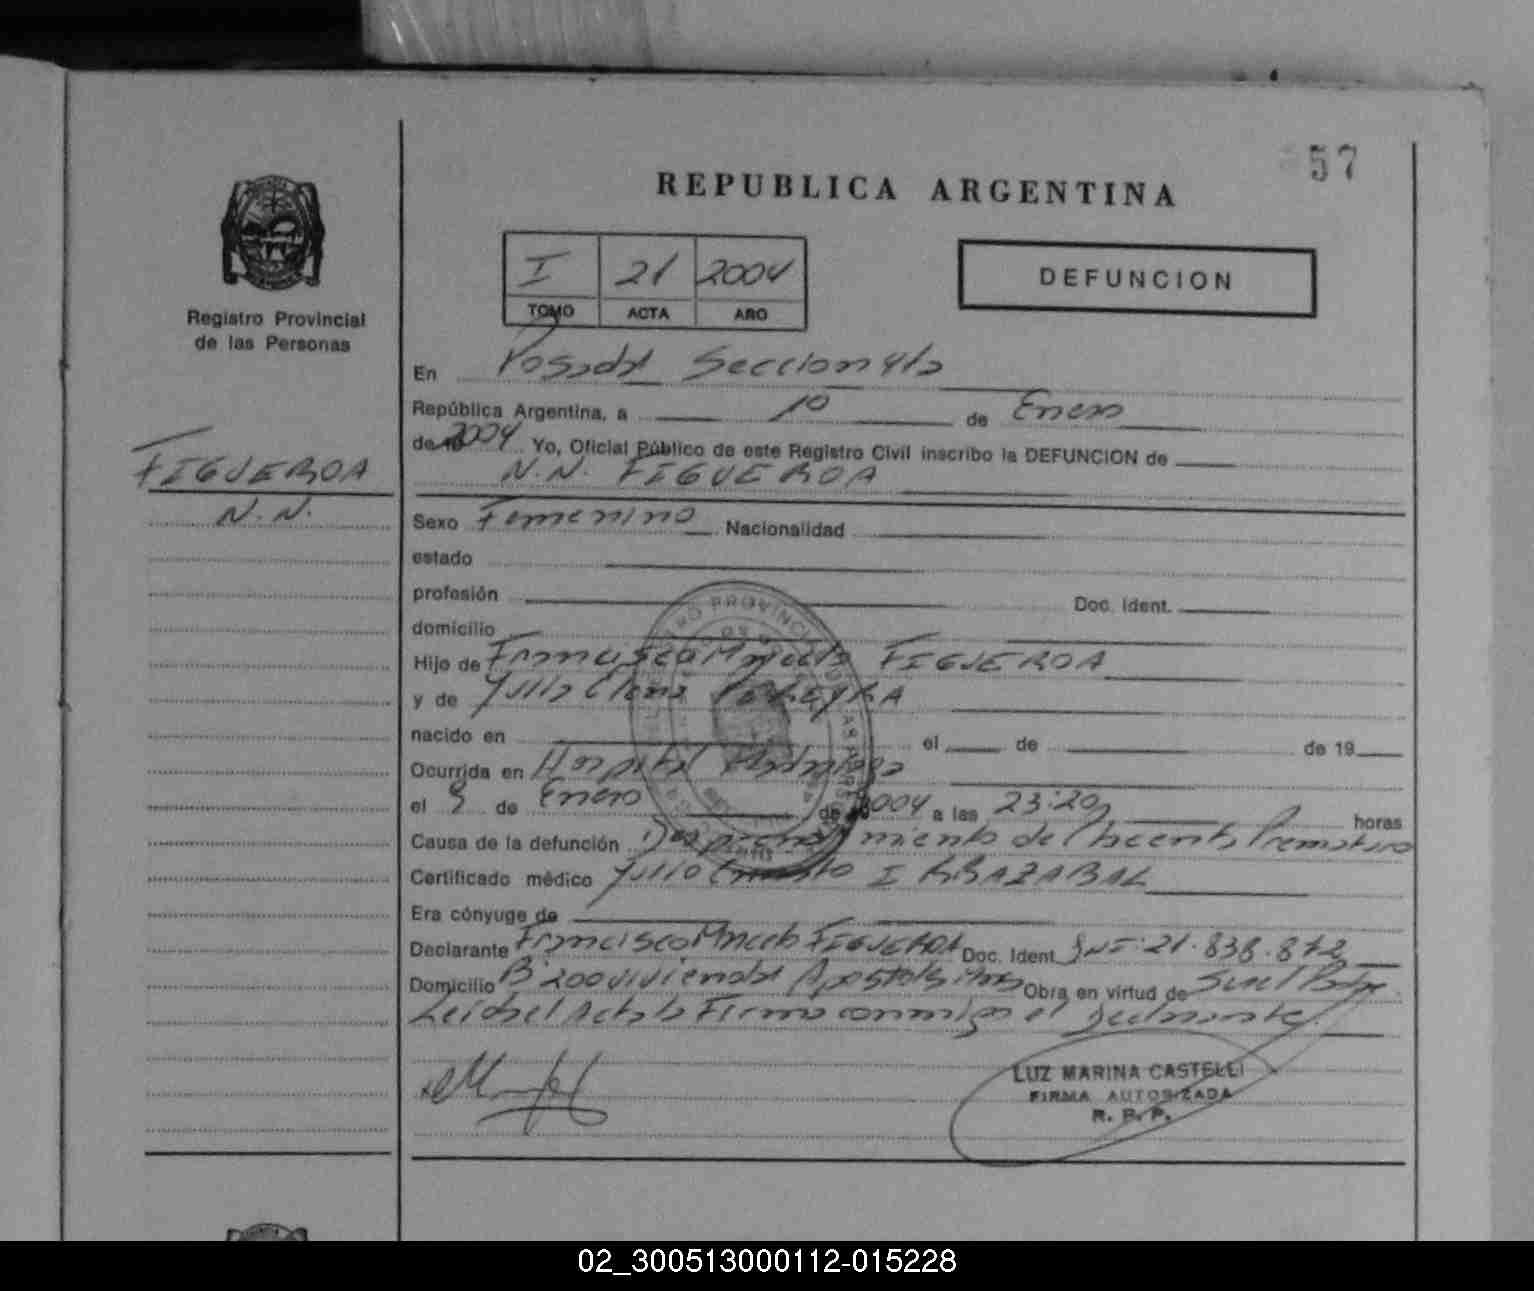 57
REPUBLICA ARGENTINA
I 21 2004
TOMO ACTA AÑO
DEFUNCION
Registro Provincial
de las Personas
En Posadas Seccional 4ta
República Argentina, a 10 de Enero
de 19 2004 Yo, Oficial Público de este Registro Civil inscribo la DEFUNCION de
N.N. FIGUEROA
FIGUEROA
N.N.
Sexo Femenino Nacionalidad
estado
profesión Doc. Ident.
domicilio
Hijo de Francisco FIGUEROA
y de Julia Elena PEREYRA
nacido en el de de 19
Ocurrida en Hospital
el 9 de Enero de 2004 a las 23:20 horas
Causa de la defunción Desprendimiento de Placenta Prematuro
Certificado médico Julio Ernesto IRRAZABAL
Era cónyuge de
Declarante Francisco FIGUEROA Doc. Ident. DNI: 21.838.872
Domicilio Bº 200 viviendas Apostoles Mnes Obra en virtud de
Leida el Acta la Firma conmigo el declarante.
LUZ MARINA CASTELLI
FIRMA AUTORIZADA
R. P. P.
02_300513000112-015228